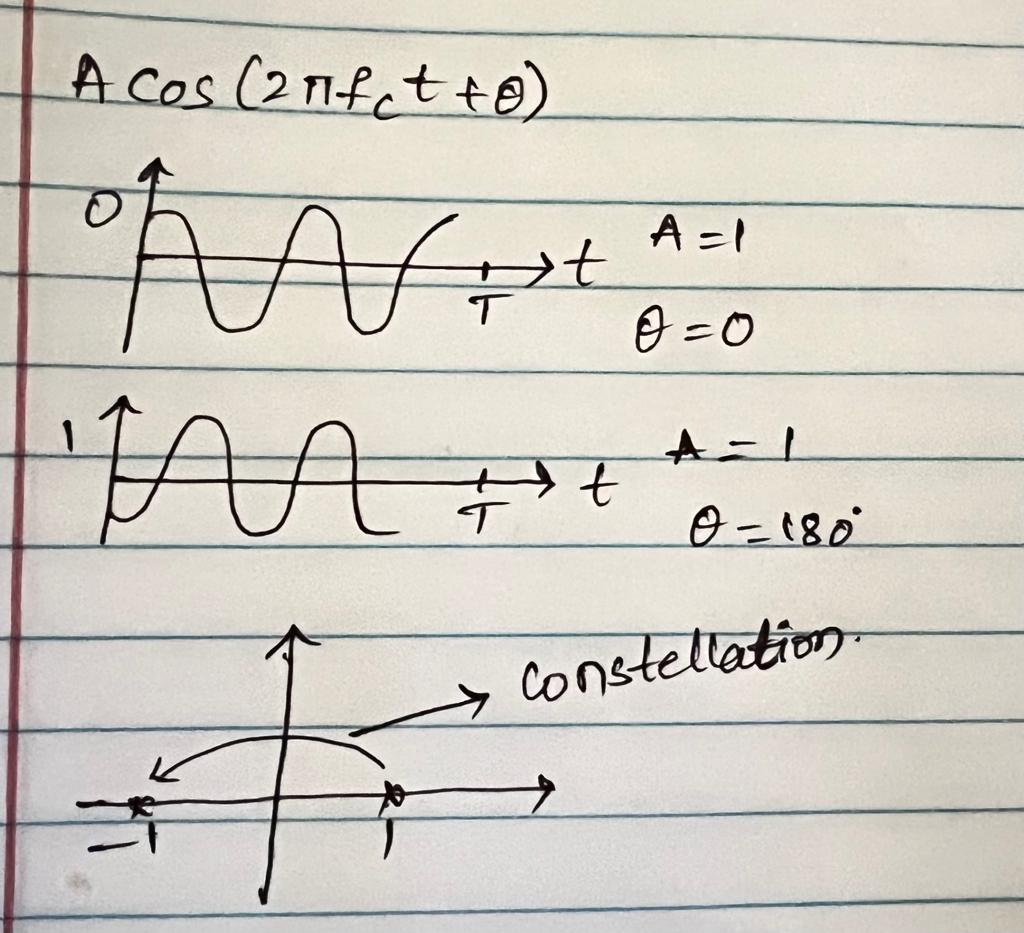 A cos (2πf_c t + θ)
0
t
A = 1
T
θ = 0
1
t
A = 1
T
θ = 180°
constellation.
-1
1